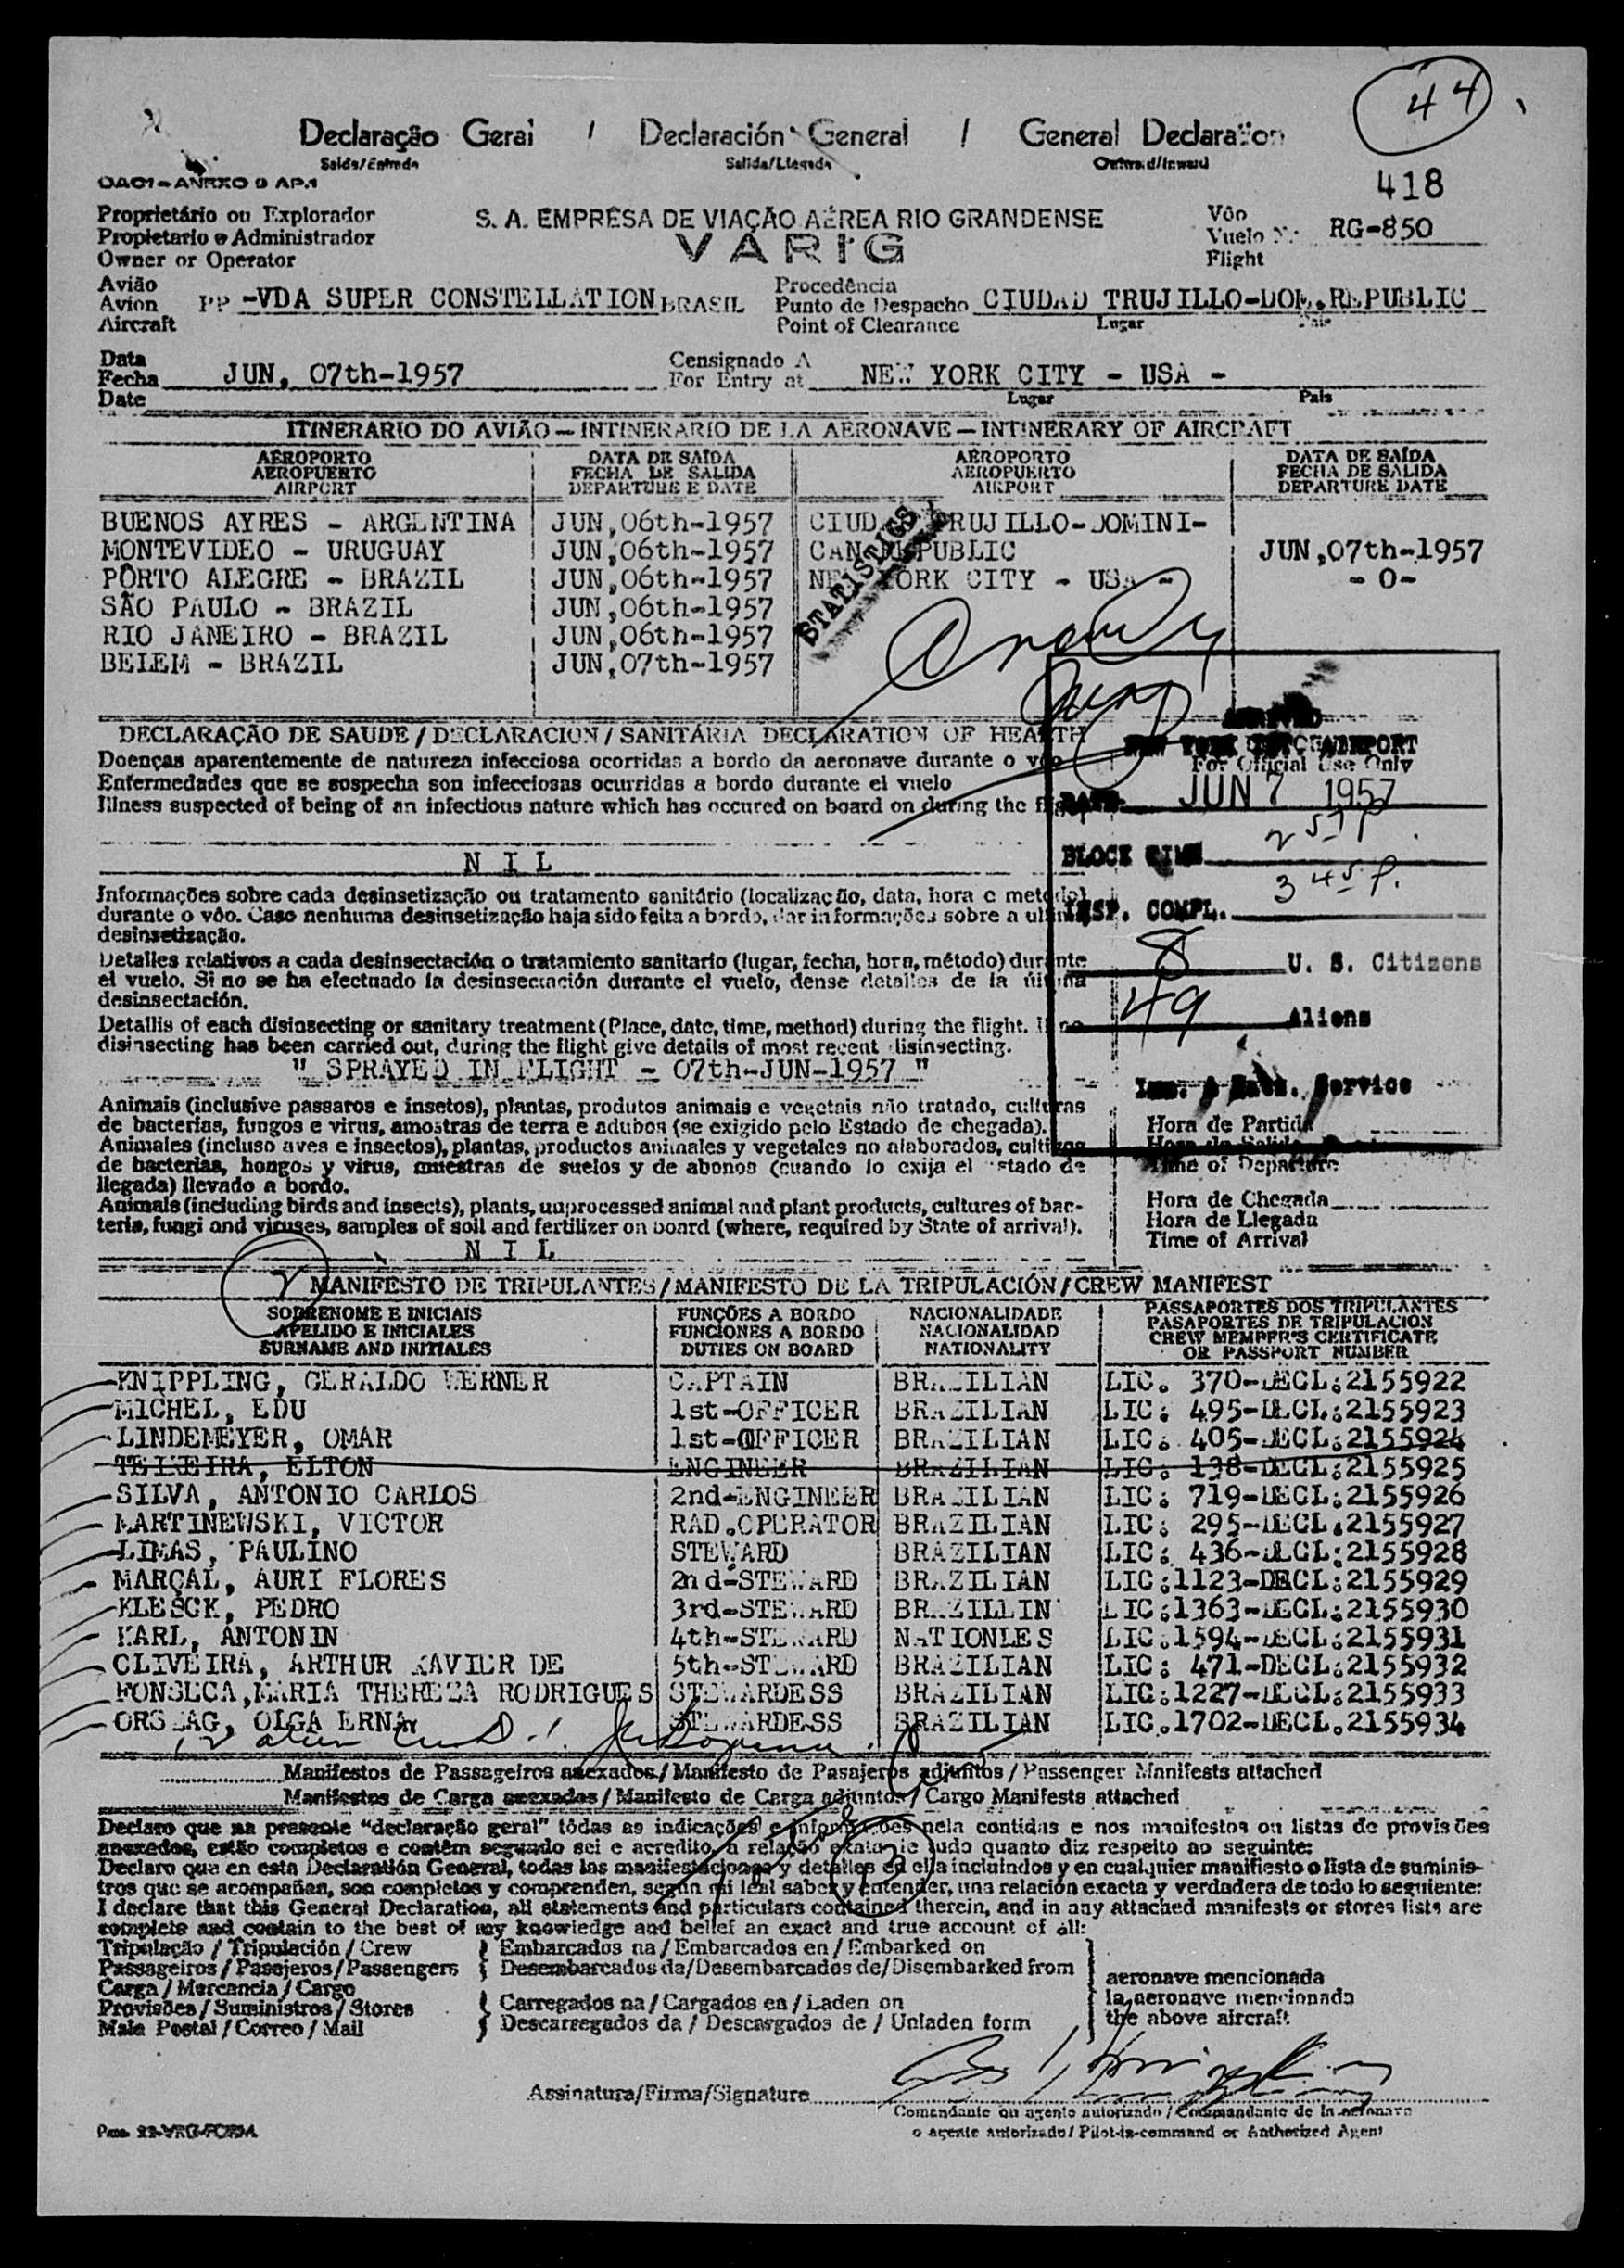 44
Declaração Geral / Declaración General / General Declaration
Saída/Entrada Salida/Llegada Outward/Inward
OACI-ANEXO 9 AP.1
418
Proprietário ou Explorador
Propietario e Administrador
Owner or Operator
S. A. EMPRÊSA DE VIAÇÃO AÉREA RIO GRANDENSE
VARIG
Vôo
Vuelo Nº RG-850
Flight
Avião
Avion PP-VDA SUPER CONSTELLATION BRASIL
Aircraft
Procedência
Punto de Despacho CIUDAD TRUJILLO-DOM.REPUBLIC
Point of Clearance Lugar País
Data
Fecha JUN, 07th-1957
Date
Consignado A
For Entry at NEW YORK CITY - USA -
Lugar País
ITINERARIO DO AVIÃO — INTINERARIO DE LA AERONAVE — INTINERARY OF AIRCRAFT
AÉROPORTO DATA DE SAÍDA AÉROPORTO DATA DE SAÍDA
AEROPUERTO FECHA DE SALIDA AEROPUERTO FECHA DE SALIDA
AIRPORT DEPARTURE E DATE AIRPORT DEPARTURE DATE
BUENOS AYRES - ARGENTINA JUN,06th-1957 CIUDAD TRUJILLO-DOMINI-
MONTEVIDEO - URUGUAY JUN,06th-1957 CAN REPUBLIC JUN,07th-1957
PÔRTO ALEGRE - BRAZIL JUN,06th-1957 NEW YORK CITY - USA - -0-
SÃO PAULO - BRAZIL JUN,06th-1957
RIO JANEIRO - BRAZIL JUN,06th-1957
BELEM - BRAZIL JUN,07th-1957
STATISTICS
DECLARAÇÃO DE SAUDE / DECLARACION / SANITÁRIA DECLARATION OF HEALTH
Doenças aparentemente de natureza infecciosa ocorridas a bordo da aeronave durante o vôo
Enfermedades que se sospecha son infecciosas ocurridas a bordo durante el vuelo
Illness suspected of being of an infectious nature which has occured on board on during the flight
N I L
ARRIVED
NEW YORK AIRPORT
For Official Use Only
DATE JUN 7 1957
257P
BLOCK TIME
345P.
INSP. COMPL.
8 U. S. Citizens
49 Aliens
Imm. & Natz. Service
Informações sobre cada desinsetização ou tratamento sanitário (localização, data, hora e metodo)
durante o vôo. Caso nenhuma desinsetização haja sido feita a bordo, dar informações sobre a ultima
desinsetização.
Detalles relativos a cada desinsectación o tratamiento sanitario (lugar, fecha, hora, método) durante
el vuelo. Si no se ha efectuado la desinsectación durante el vuelo, dense detalles de la última
desinsectación.
Detallis of each disinsecting or sanitary treatment (Place, date, time, method) during the flight. If no
disinsecting has been carried out, during the flight give details of most recent disinsecting.
" SPRAYED IN FLIGHT - 07th-JUN-1957 "
Animais (inclusive passaros e insetos), plantas, produtos animais e vegetais não tratado, culturas
de bacterias, fungos e virus, amostras de terra e adubos (se exigido pelo Estado de chegada).
Animales (incluso aves e insectos), plantas, productos animales y vegetales no alaborados, cultivos
de bacterias, hongos y virus, muestras de suelos y de abonos (cuando lo exija el estado de
llegada) llevado a bordo.
Animals (including birds and insects), plants, unprocessed animal and plant products, cultures of bac-
teria, fungi and viruses, samples of soil and fertilizer on board (where, required by State of arrival).
N I L
Hora de Partida
Hora de Salida
Time of Departure
Hora de Chegada
Hora de Llegada
Time of Arrival
MANIFESTO DE TRIPULANTES / MANIFESTO DE LA TRIPULACIÓN / CREW MANIFEST
SOBRENOME E INICIAIS FUNÇÕES A BORDO NACIONALIDADE PASSAPORTES DOS TRIPULANTES
APELIDO E INICIALES FUNCIONES A BORDO NACIONALIDAD PASAPORTES DE TRIPULACION
SURNAME AND INITIALES DUTIES ON BOARD NATIONALITY CREW MEMBER'S CERTIFICATE
OR PASSPORT NUMBER
KNIPPLING, GERALDO WERNER CAPTAIN BRAZILIAN LIC. 370-DECL:2155922
MICHEL, EDU 1st-OFFICER BRAZILIAN LIC: 495-DECL:2155923
LINDEMEYER, OMAR 1st-OFFICER BRAZILIAN LIC: 405-DECL:2155924
TEIXEIRA, ELTON ENGINEER BRAZILIAN LIC: 138-DECL:2155925
SILVA, ANTONIO CARLOS 2nd-ENGINEER BRAZILIAN LIC: 719-DECL:2155926
MARTINEWSKI, VICTOR RAD.OPERATOR BRAZILIAN LIC: 295-DECL:2155927
LIMAS, PAULINO STEWARD BRAZILIAN LIC: 436-DECL:2155928
MARÇAL, AURI FLORES 2nd-STEWARD BRAZILIAN LIC:1123-DECL:2155929
KLESCK, PEDRO 3rd-STEWARD BRAZILLIN LIC:1363-DECL:2155930
KARL, ANTONIN 4th-STEWARD NATIONLES LIC.1594-DECL:2155931
OLIVEIRA, ARTHUR XAVIER DE 5th-STEWARD BRAZILIAN LIC: 471-DECL:2155932
FONSECA,MARIA THEREZA RODRIGUES STEWARDESS BRAZILIAN LIC:1227-DECL:2155933
ORSZAG, OLGA ERNA STEWARDESS BRAZILIAN LIC.1702-DECL.2155934
Manifestos de Passageiros anexados / Manifesto de Pasajeros adjuntos / Passenger Manifests attached
Manifestos de Carga anexados / Manifesto de Carga adjuntos / Cargo Manifests attached
Declaro que na presente "declaração geral" tôdas as indicações e informações nela contidas e nos manifestos ou listas de provisões
anexados, estão completos e contêm segundo sei e acredito, a relação exata de tudo quanto diz respeito ao seguinte:
Declaro que en esta Declaratión General, todas las manifestaciones y detalles en ella incluindos y en cualquier manifiesto o lista de suminis-
tros que se acompañan, son completos y comprenden, según mi leal saber y entender, una relación exacta y verdadera de todo lo seguinte:
I declare that this General Declaration, all statements and particulars contained therein, and in any attached manifests or stores lists are
complete and contain to the best of my knowledge and belief an exact and true account of all:
Tripulação / Tripulación / Crew
Passageiros / Pasajeros / Passengers
Carga / Mercancia / Cargo
Provisões / Suministros / Stores
Mala Postal / Correo / Mail
Embarcados na / Embarcados en / Embarked on
Desembarcados da/Desembarcados de/Disembarked from
Carregados na / Cargados en / Laden on
Descarregados da / Descargados de / Unladen form
aeronave mencionada
la aeronave mencionada
the above aircraft
Assinatura/Firma/Signature
Comandante ou agente autorizado / Commandante de la aeronave
o agente autorizado / Pilot-in-command or Authorized Agent